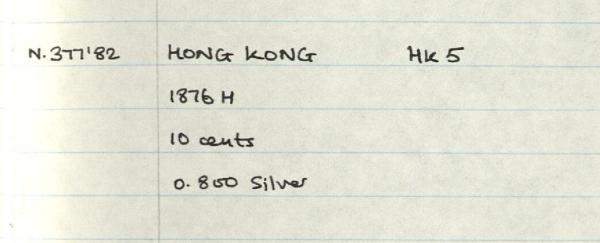 N.377'82 HONG KONG HK 5
1876 H
10 cents
0.800 Silver